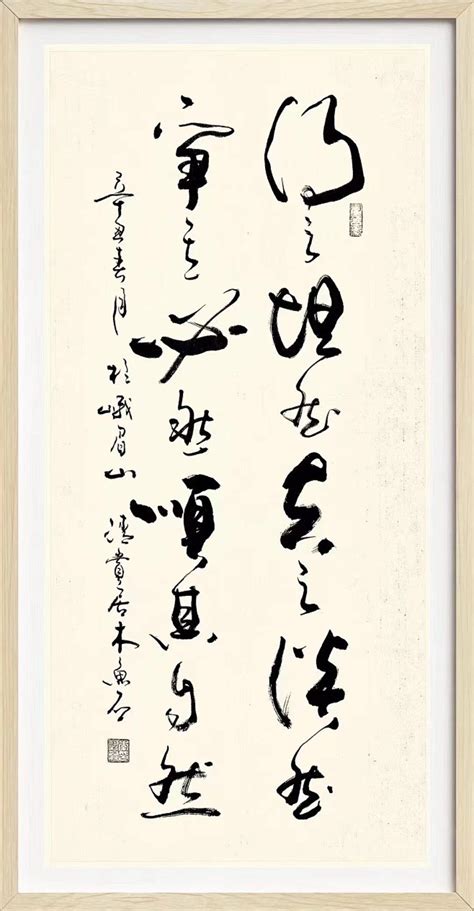 得之坦然失之淡然
争其必然順其自然
辛丑春月於峨眉山清貴居木魚石